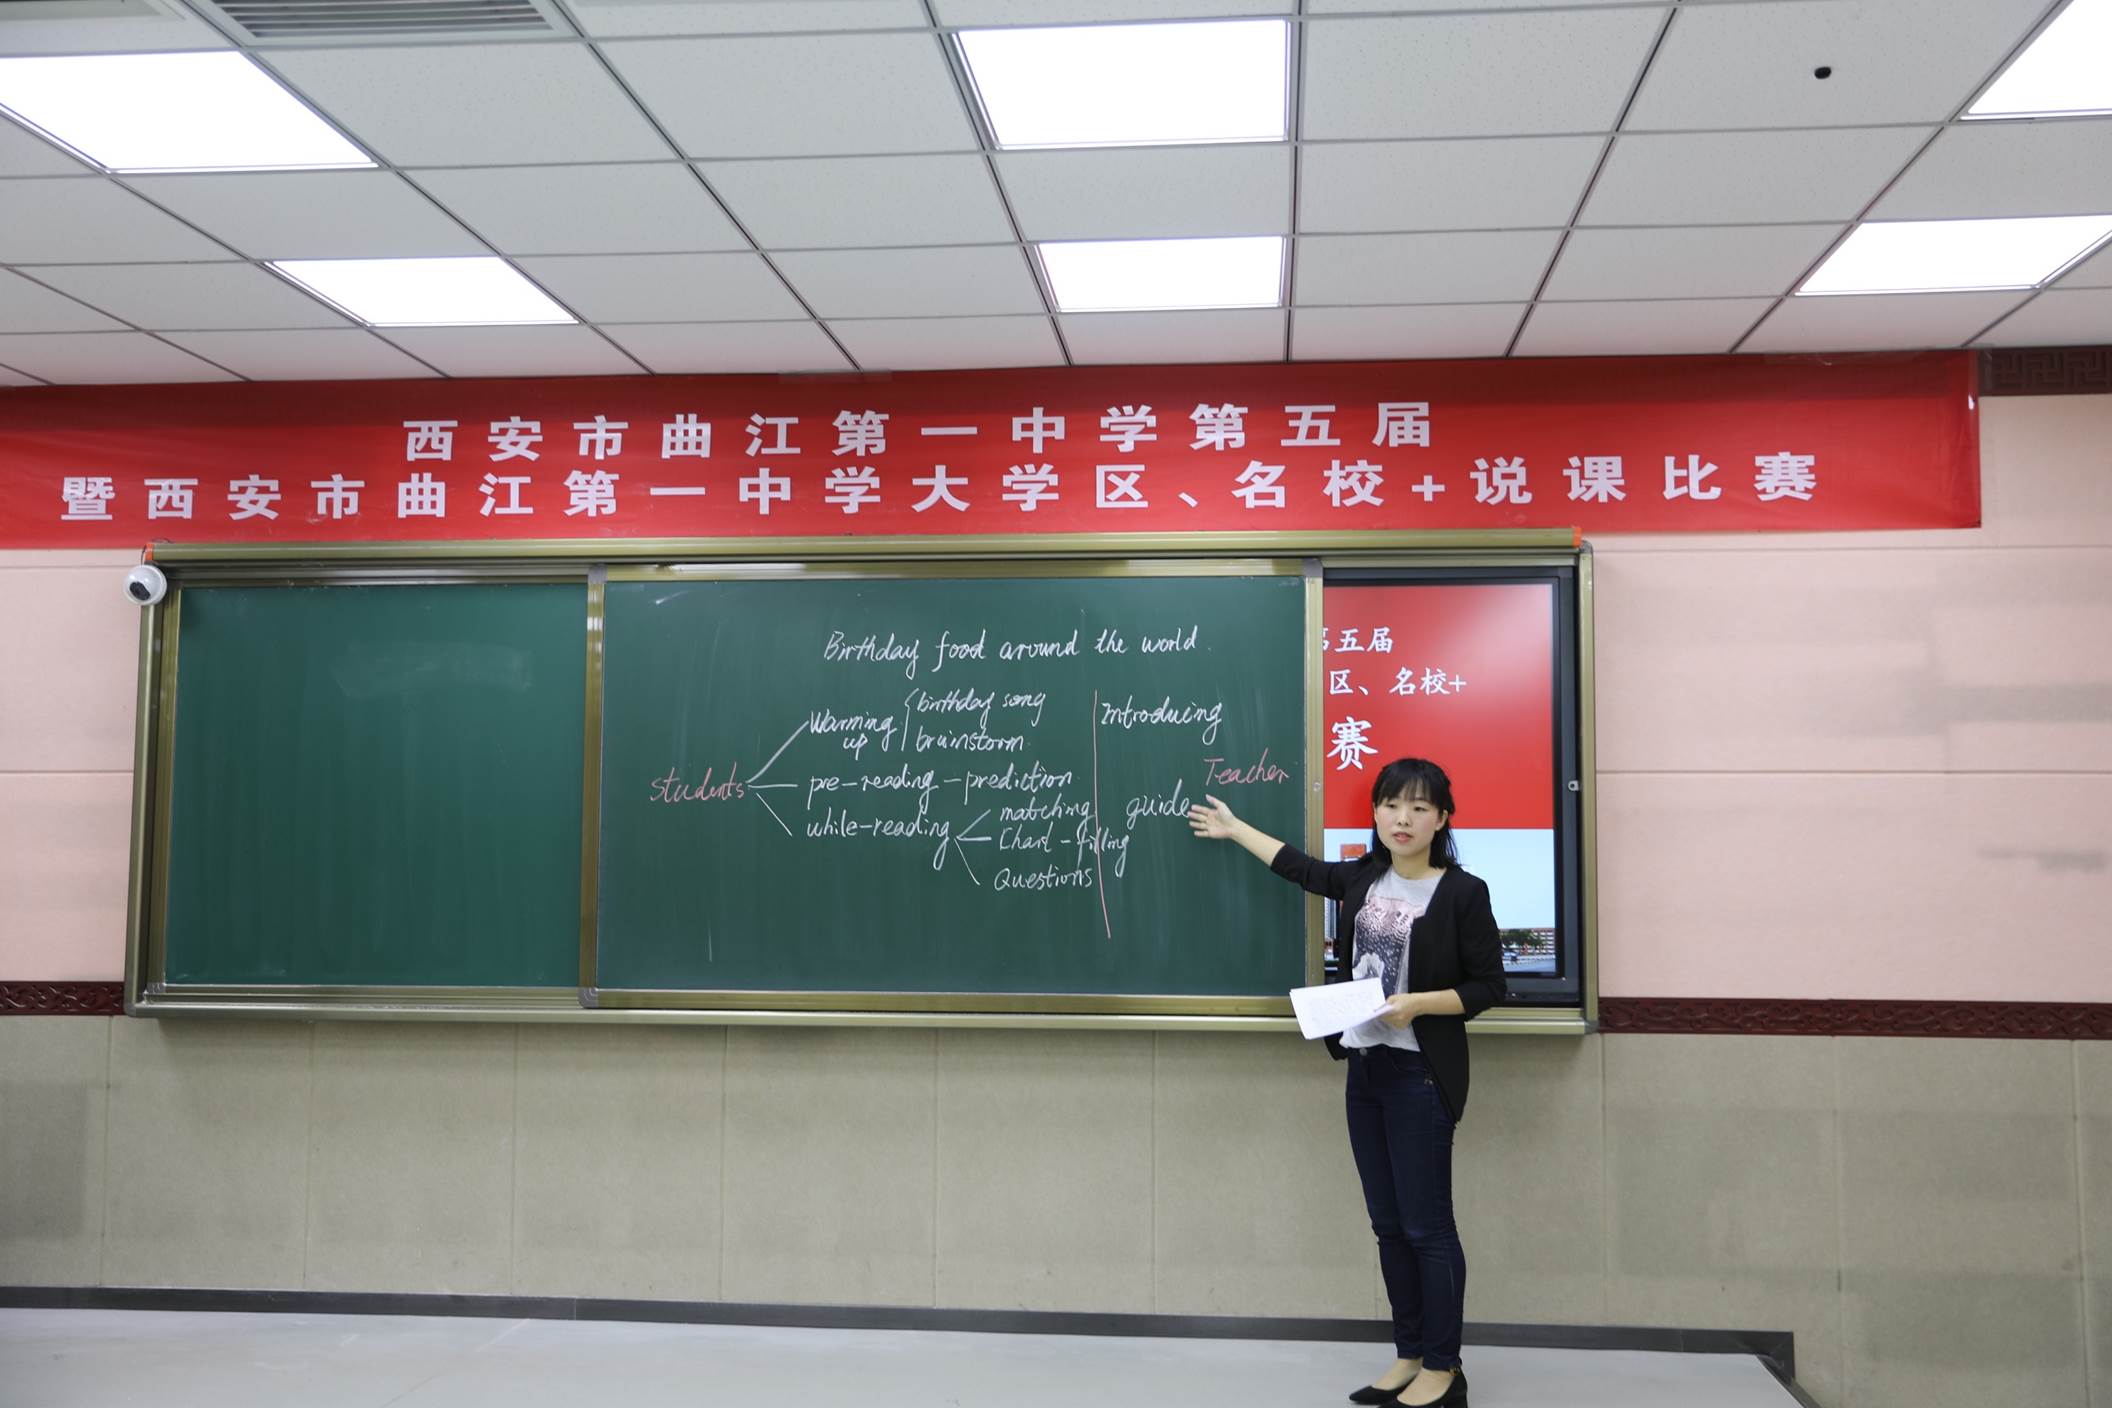 西安市曲江第一中学第五届
暨西安市曲江第一中学大学区、名校+说课比赛
Birthday food around the world.
students
Warming up
birthday song
brainstorm
pre-reading - prediction
while-reading
matching
Chart-filling
Questions
Introducing
Teacher
guide
五届
区、名校+
赛